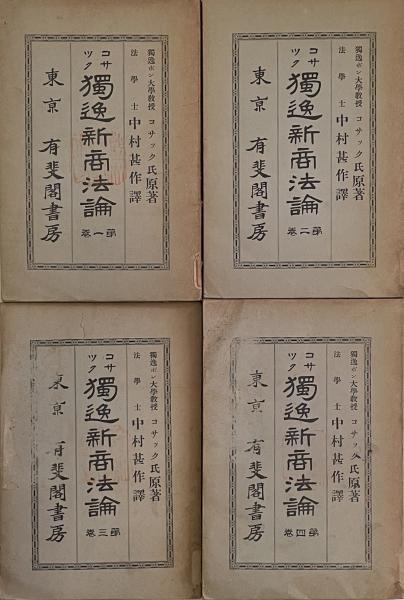 獨逸ボン大學教授 コサック氏原著
法學士 中村甚作譯
コサック 獨逸新商法論 第一卷
東京 有斐閣書房
獨逸ボン大學教授 コサック氏原著
法學士 中村甚作譯
コサック 獨逸新商法論 第二卷
東京 有斐閣書房
獨逸ボン大學教授 コサック氏原著
法學士 中村甚作譯
コサック 獨逸新商法論 第三卷
東京 有斐閣書房
獨逸ボン大學教授 コサック氏原著
法學士 中村甚作譯
コサック 獨逸新商法論 第四卷
東京 有斐閣書房